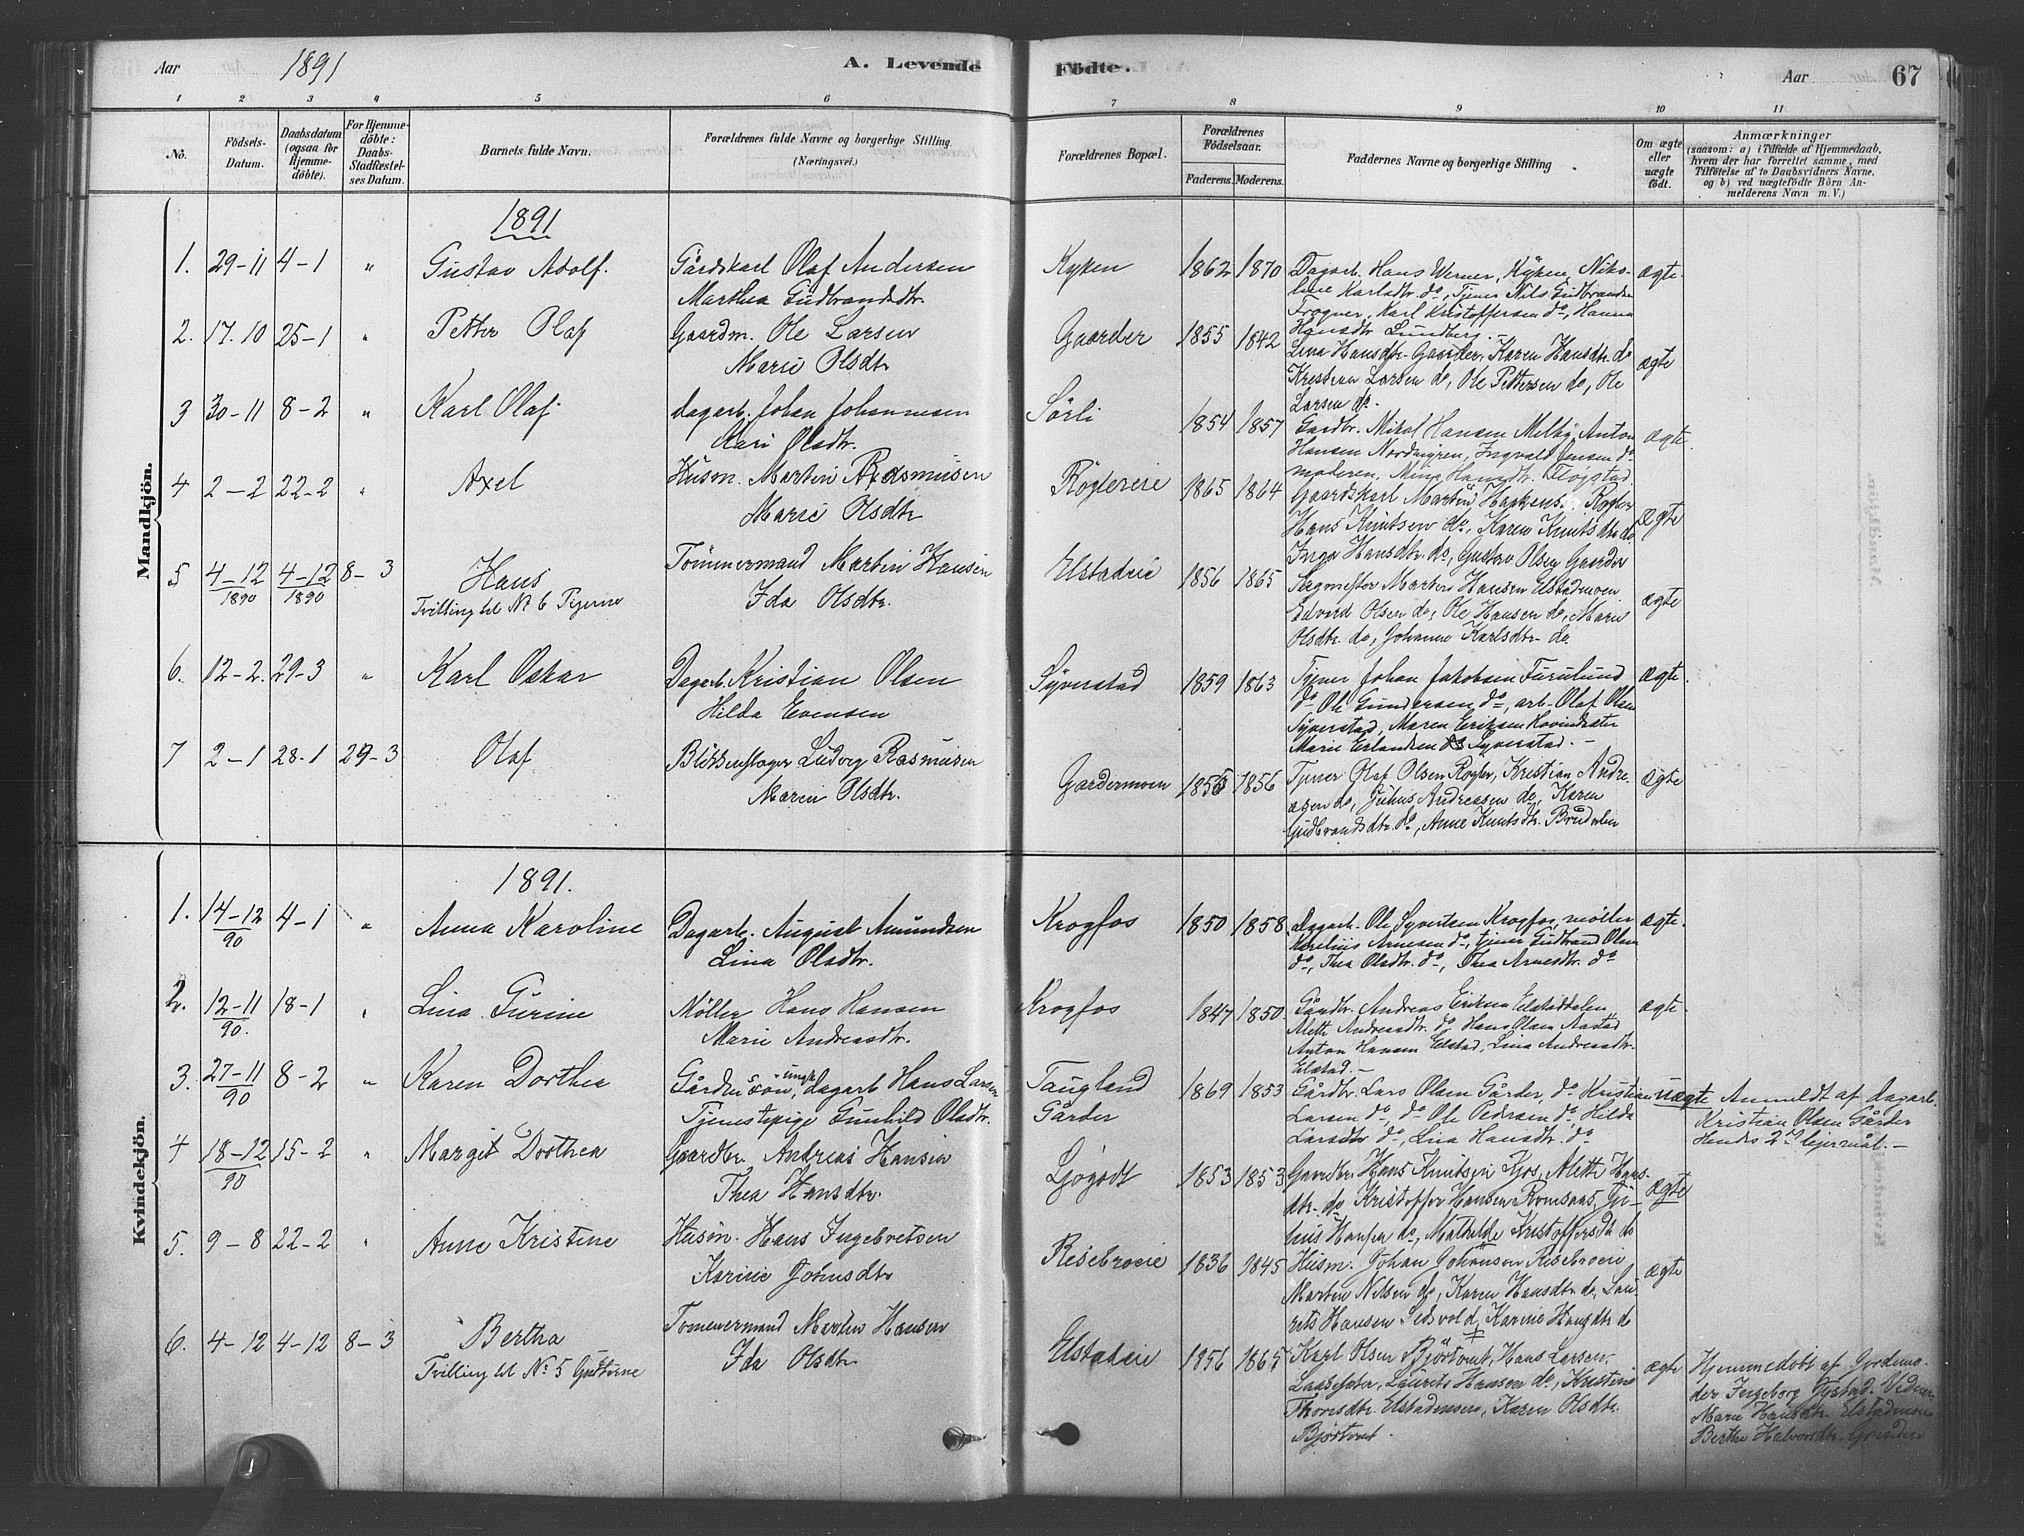 Aar 1891 A. Levende Födte. Aar 67
1 2 3 4 5 6 7 8 9 10 11
No.
Födsels-Datum.
Daabsdatum (ogsaa for Hjemme-döbte).
For Hjemme-döbte: Daabs-Stadfæstel-ses Datum.
Barnets fulde Navn.
Forældrenes fulde Navne og borgerlige Stilling
(Næringsvei.)
Forældrenes Bopæl.
Forældrenes Födselsaar.
Faderens. Moderens.
Faddernes Navne og borgerlige Stilling
Om ægte eller uægte födt.
Anmærkninger
(saasom: a) i Tilfælde af Hjemmedaab,
hvem der har forrettet samme, med
Tilföielse af to Daabsvidners Navne,
og b) ved uægtefödte Börn An-
melderens Navn m. V.)
Mandkjön.
1891
1. 29-11 4-1 " Gustav Adolf. Gårdskarl Olaf Andersen
Marthea Gudbrandsdtr.
Kyken 1862 1870
Dagarb. Hans Werner, Kyken, Niko-
line Karlsdtr. do, Tjener Nils Gudbrandsen
Frogner, Karl Kristoffersen do, Hanna
Hansdtr Lundberg.
ægte.
2. 17.10 25-1 " Petter Olaf Gaardm. Ole Larsen
Marie Olsdtr
Gaarder 1855 1842
Lina Hansdtr. Gaarder, Karen Hansdtr. do
Larsen do, Ole Pettersen do, Ole
Larsen do.
ægte
3 30-11 8-2 " Karl Olaf dagarb. Johan Johannesen
Kari Olsdtr.
Sörli 1854 1857
Gardbr. Hansen Melby, Anton
Hansen Ingvald Jensen do
moderen, Hansdtr.
ægte.
4 2-2 22-2 " Axel Husm. Martin Rasmusen
Marie Olsdtr
Röglereie 1865 1864
Gaardskarl Martin Rogler
Hans Knutsen do, Karen Knutsdtr do
Inga Hansdtr. do, Gustav Olsen Gaarder
Ægte
5 4-12 1890 4-12 1890 8-3 Hans
Tvilling til No 6 Pigerne
Tömmermand Martin Hansen
Ida Olsdtr.
Elstadeie 1856 1865
Sagmester Martin Hansen Elstadmoen
Edvard Olsen do, Ole Hansen do, Marie
Olsdtr. do, Johanne Karlsdtr. do
ægte
6. 12-2. 29-3 " Karl Oskar Dagarb. Kristian Olsen
Hilda Evensen
Syverstad 1859 1863
Tjener Johan Jakobsen Furulund
do Ole Gundersen do, arb. Olaf Olsen
Syverstad, Maren Eriksen
Marie Erlandsen Syverstad. -
ægte.
7 2-1 28-1 29-3 Olaf Blikkenslager Ludvig Rasmusen
Maren Olsdtr.
Gardermoen 1856
Tjener Olaf Olsen Rogler, Kristian Andre-
asen do, Julius Andreasen do, Karen
Gudbrandsdtr. do, Anne Knutsdtr.
ægte
Kvindekjön.
1891.
1. 14-12 90 4-1 " Anna Karoline Dagarb. August Amundsen
Lina Olsdtr.
Krogfos 1850 1858
Dagarb. Ole Syvertsen Krogfos, möller
Arnesen do, tjener Gudbrand Olsen
do, Thea Olsdtr. do, Thea Arnesdtr. do
ægte.
2. 12-11 90. 18-1 " Lina Turine Möller Hans Hansen
Marie Andreasdtr.
Krogfos 1847 1850
Gårdbr. Andreas Eriksen Elstaddalen
Alette Andreasdtr. do Hans Olsen Aastad
Anton Hansen Elstad, Lina Andreasdtr.
Elstad. -
ægte.
3. 27-11 90 8-2 " Karen Dorthea Gårdm. sön, ungk. dagarb Hans Larsen
Tjenestepige Gunhild Olsdtr.
Taugland
Gårder
1869 1853
Gårdbr. Lars Olsen Gårder, do Kristian
Larsen do, do Ole Pedersen do, Hilda
Larsdtr do, Lina Hansdtr. do
uægte
Anmeldt af dagarb.
Kristian Olsen Gårder
Hendes 2det leiermål. -
4 18-12 90 15-2 " Margit Dorthea Gaardbr. Andreas Hansen
Thea Hansdtr.
Ljögodt 1853 1853
Gaardbr. Hans Knutsen Kjos, Alette Hans-
dtr. do Kristoffer Hansen Romsaas, Ju-
lius Hansen do, Mathilde Kristoffersdtr do
Ægte
5. 9-8 22-2 " Anne Kristine Husm. Hans Ingebretsen
Karine Johnsdtr
Risebroeie 1836 1845
Husm. Johan Johnsen Risebroeie
Martin Nilsen do, Karen Hansdtr do, Lau-
rits Hansen, Karine Hansdtr do
ægte
6. 4-12 4-12 8-3 Bertha
Tvilling til No 5 Gutterne
Tömmermand Martin Hansen
Ida Olsdtr.
Elstadeie 1856 1865
Karl Olsen Björtomt, Hans Larsen
Laurits Hansen do, Kristine
Thorsdtr. Elstadensen, Karen Olsdtr.
Björtomt.
ægte
Hjemmedöbt af Jordmo-
der Ingeborg Vidner
Marie Hansdtr. Elstadmoen
Berthe Halvorsdtr.